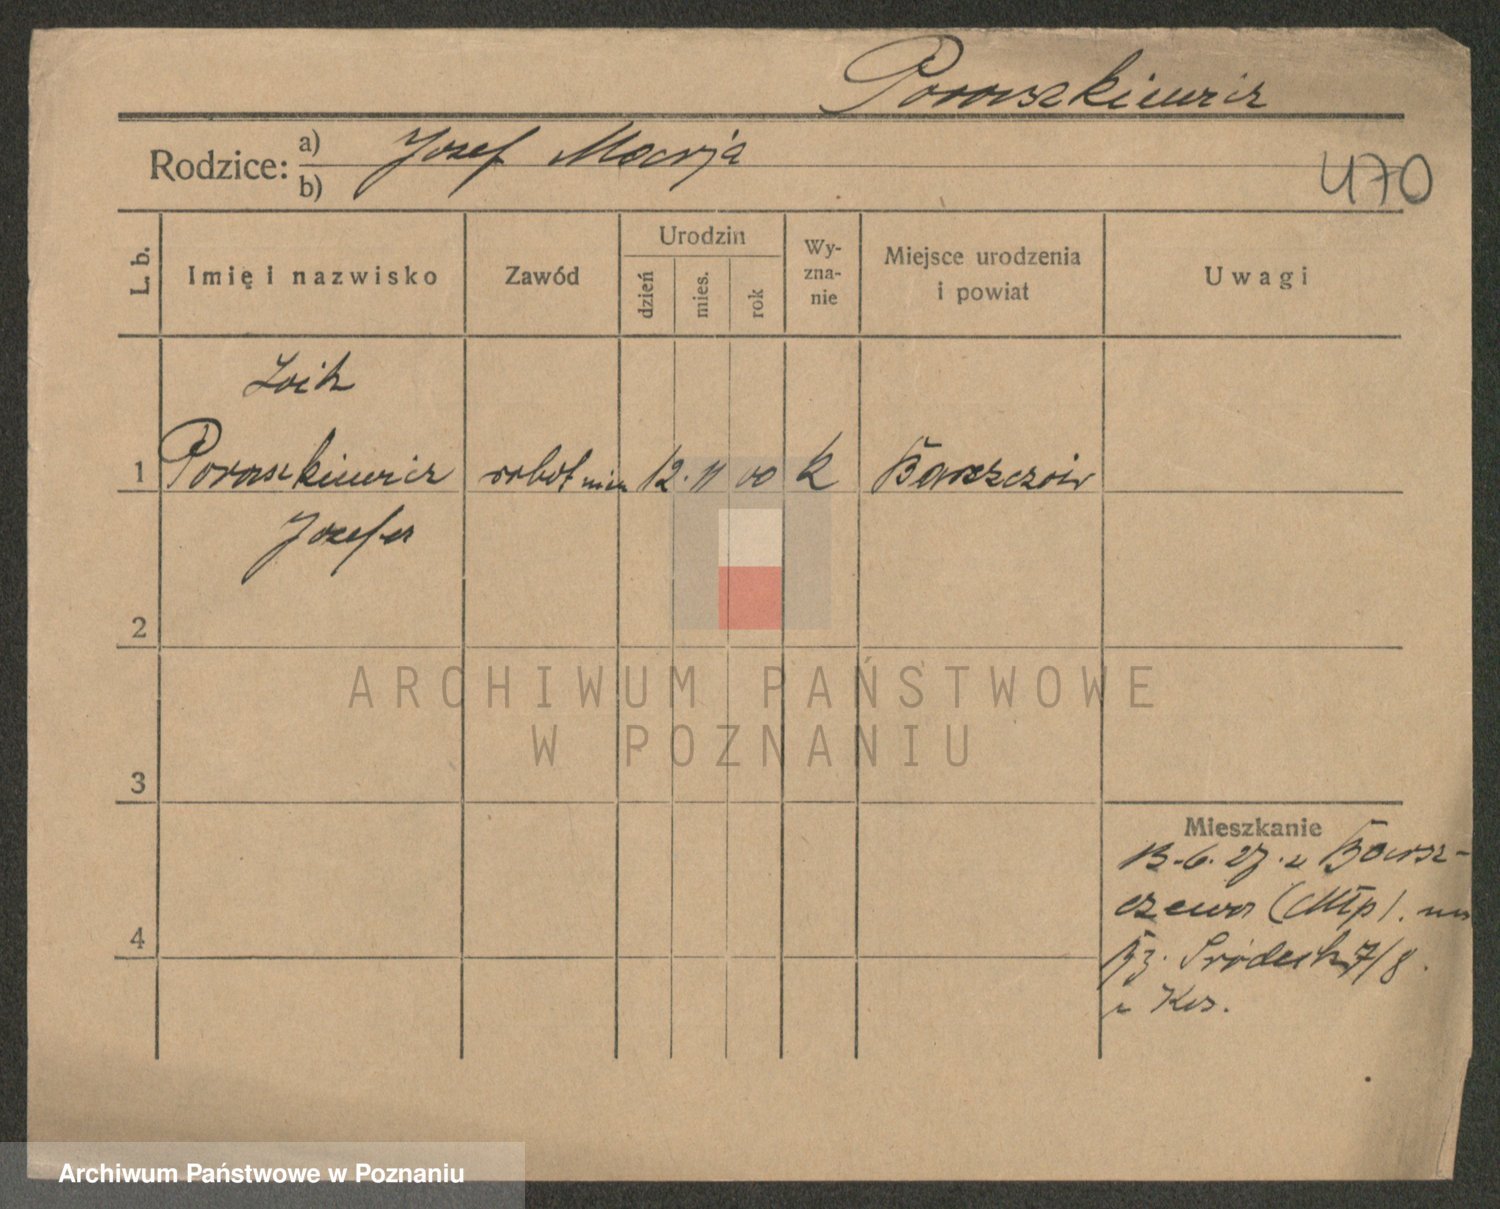 Poraszkiewicz
Rodzice: a) Jozef Marja
b)
470
L. b.
Imię i nazwisko
Zawód
Urodzin
dzień
mies.
rok
Wy-
zna-
nie
Miejsce urodzenia
i powiat
Uwagi
1
Poraszkiewicz
Jozefa
12. 11 00
k
Barszczów
2
3
4
Mieszkanie
13.6.27. z Barsz-
czewa (Młp).
7/8.
z Krs.
ARCHIWUM PAŃSTWOWE
W POZNANIU
Archiwum Państwowe w Poznaniu